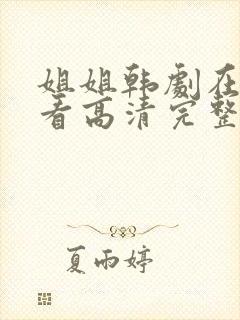 姐姐韩劇在
看高清完整
夏雨婷